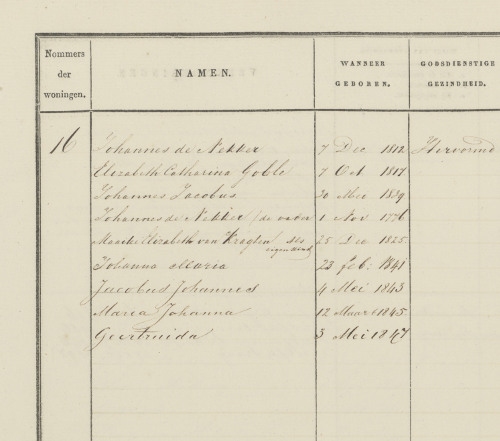 Nommers der woningen.
NAMEN.
WANNEER GEBOREN.
GODSDIENSTIGE GEZINDHEID.
16 Johannes de Nekker 7 Dec 1812 Hervormd
Elizabeth Catharina Goble 7 Oct 1817
Johannes Jacobus 30 1839
Johannes de Nekker / de vader 1 Nov 1776
Maartje Elizabeth van Kragten 25 Dec 1825
Johanna Maria 23 feb: 1841
Jacobus Johannes 4 Mei 1843
Maria Johanna 12 Maart 1845
Geertruida 3 Mei 1847